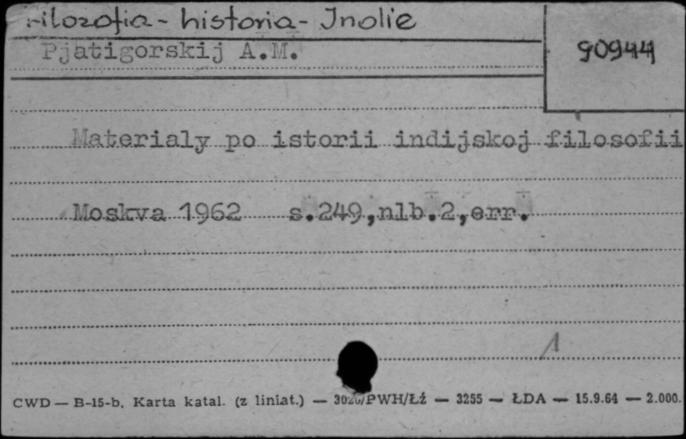 Filozofia - historia - Indie
90944
Pjatigorskij A.M.
Materialy po istorii indijskoj filosofii
Moskva 1962 s.249,nlb.2,err.
1
CWD — B-15-b, Karta katal. (z liniat.) — 3020/PWH/Łź — 3255 — ŁDA — 15.9.64 — 2.000.